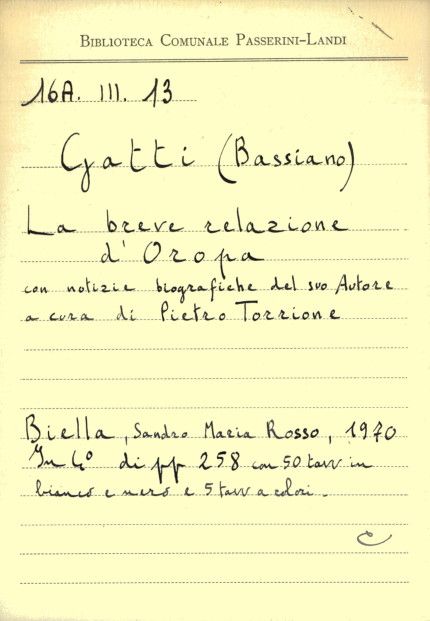 BIBLIOTECA COMUNALE PASSERINI-LANDI
16A. III. 13
Gatti (Bassiano)
La breve relazione
d'Oropa
con notizie biografiche del suo Autore
a cura di Pietro Torrione
Biella, Sandro Maria Rosso, 1970
In 4° di pp 258 con 50 tavv in
bianco e nero e 5 tavv a colori.
C